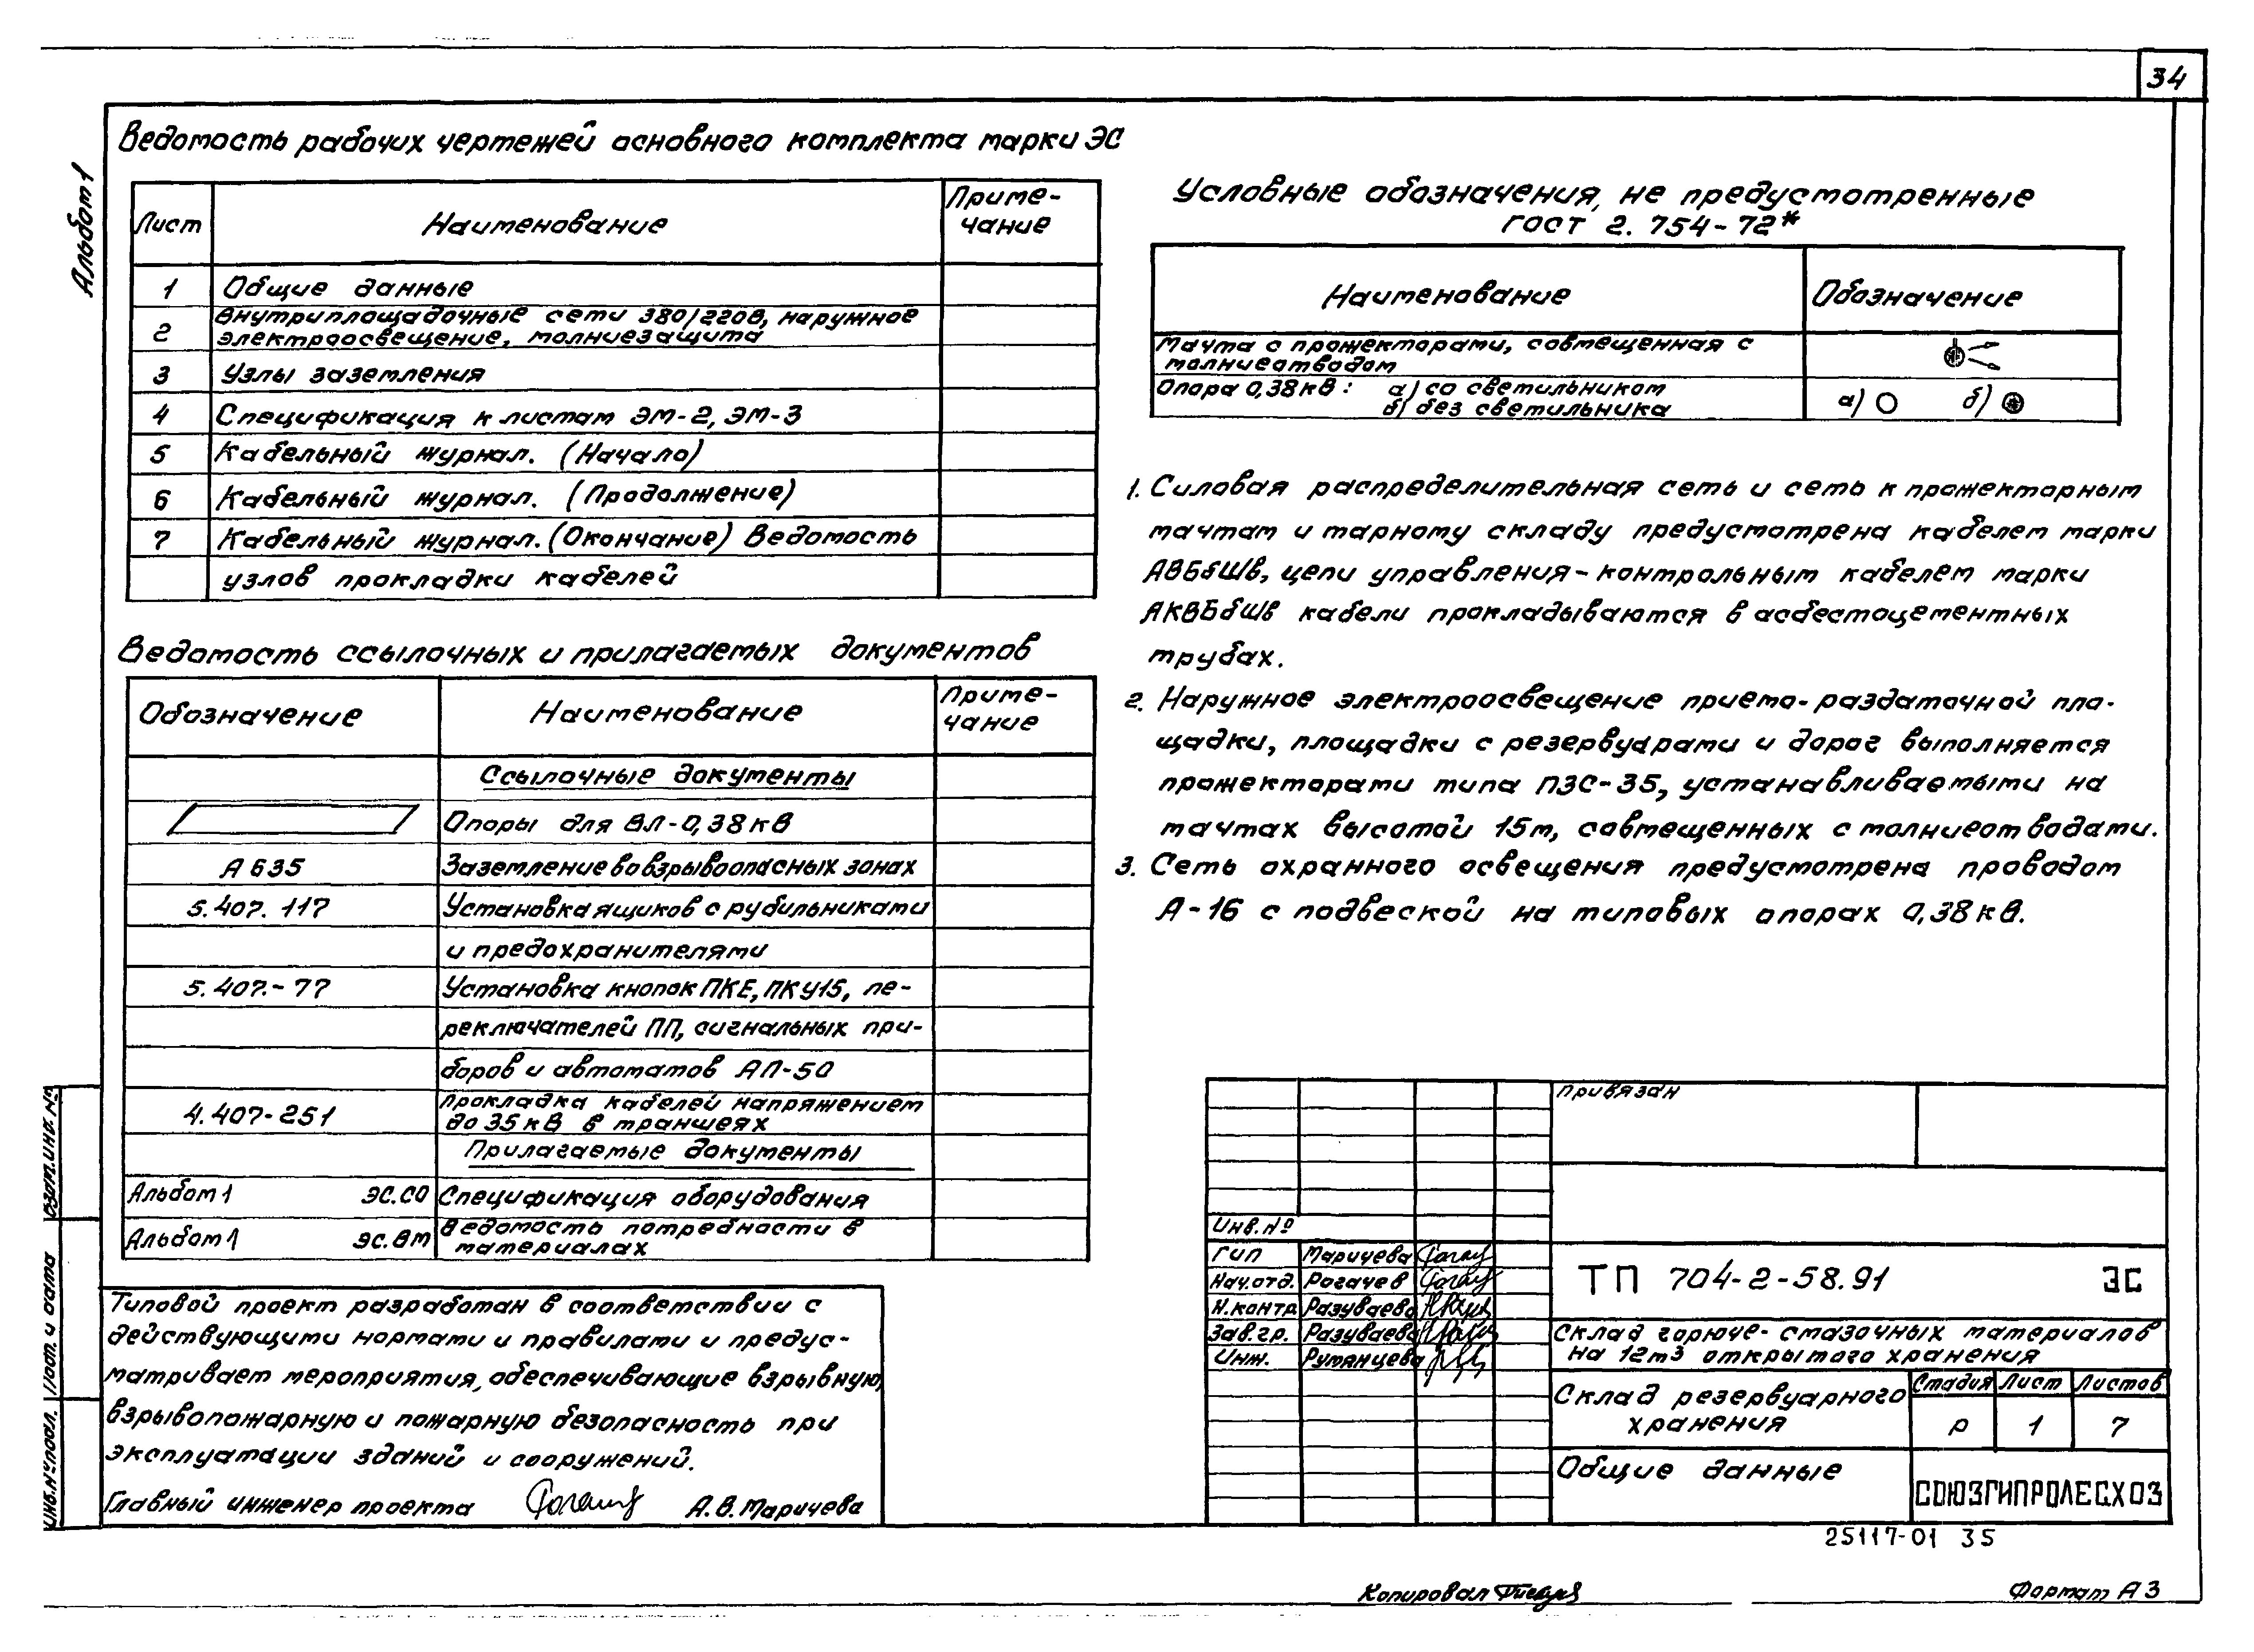 34
Альбом 1
Ведомость рабочих чертежей основного комплекта марки ЭС
Лист Наименование Приме-
чание
1 Общие данные
2 Внутриплощадочные сети 380/220В, наружное
электроосвещение, молниезащита
3 Узлы заземления
4 Спецификация к листам ЭМ-2, ЭМ-3
5 Кабельный журнал. (Начало)
6 Кабельный журнал. (Продолжение)
7 Кабельный журнал. (Окончание) Ведомость
узлов прокладки кабелей
Ведомость ссылочных и прилагаемых документов
Обозначение Наименование Приме-
чание
Ссылочные документы
Опоры для ВЛ-0,38кВ
А 635 Заземление во взрывоопасных зонах
5.407.117 Установка ящиков с рубильниками
и предохранителями
5.407.-77 Установка кнопок ПКЕ, ПКУ15, пе-
реключателей ПП, сигнальных при-
боров и автоматов АП-50
4.407-251 Прокладка кабелей напряжением
до 35кВ в траншеях
Прилагаемые документы
Альбом 1 ЭС.СО Спецификация оборудования
Альбом 1 ЭС.ВМ Ведомость потребности в
материалах
Типовой проект разработан в соответствии с
действующими нормами и правилами и предус-
матривает мероприятия, обеспечивающие взрывную,
взрывопожарную и пожарную безопасность при
эксплуатации зданий и сооружений.
Главный инженер проекта А.В.Маричева
Условные обозначения, не предусмотренные
ГОСТ 2.754-72*
Наименование Обозначение
Мачта с прожекторами, совмещенная с
молниеотводом
Опора 0,38кВ: а) со светильником
б) без светильника
а) б)
1. Силовая распределительная сеть и сеть к прожекторным
мачтам и тарному складу предусмотрена кабелем марки
АВБбШв, цепи управления-контрольным кабелем марки
АКВБбШв кабели прокладываются в асбестоцементных
трубах.
2. Наружное электроосвещение приемо-раздаточной пло-
щадки, площадки с резервуарами и дорог выполняется
прожекторами типа ПЗС-35, устанавливаемыми на
мачтах высотой 15м, совмещенных с молниеотводами.
3. Сеть охранного освещения предусмотрена проводом
А-16 с подвеской на типовых опорах 0,38кВ.
Привязан
Инв.№
ГИП Маричева
Нач.отд. Рогачев
Н.контр. Разуваева
Зав.гр. Разуваева
Инж. Румянцева
ТП 704-2-58.91 ЭС
Склад горюче-смазочных материалов
на 12м3 открытого хранения
Склад резервуарного
хранения
Стадия Лист Листов
Р 1 7
Общие данные
СОЮЗГИПРОЛЕСХОЗ
25117-01 35
Копировал
Формат А3
Взам.инв.№
Подп. и дата
Инв.№подл.